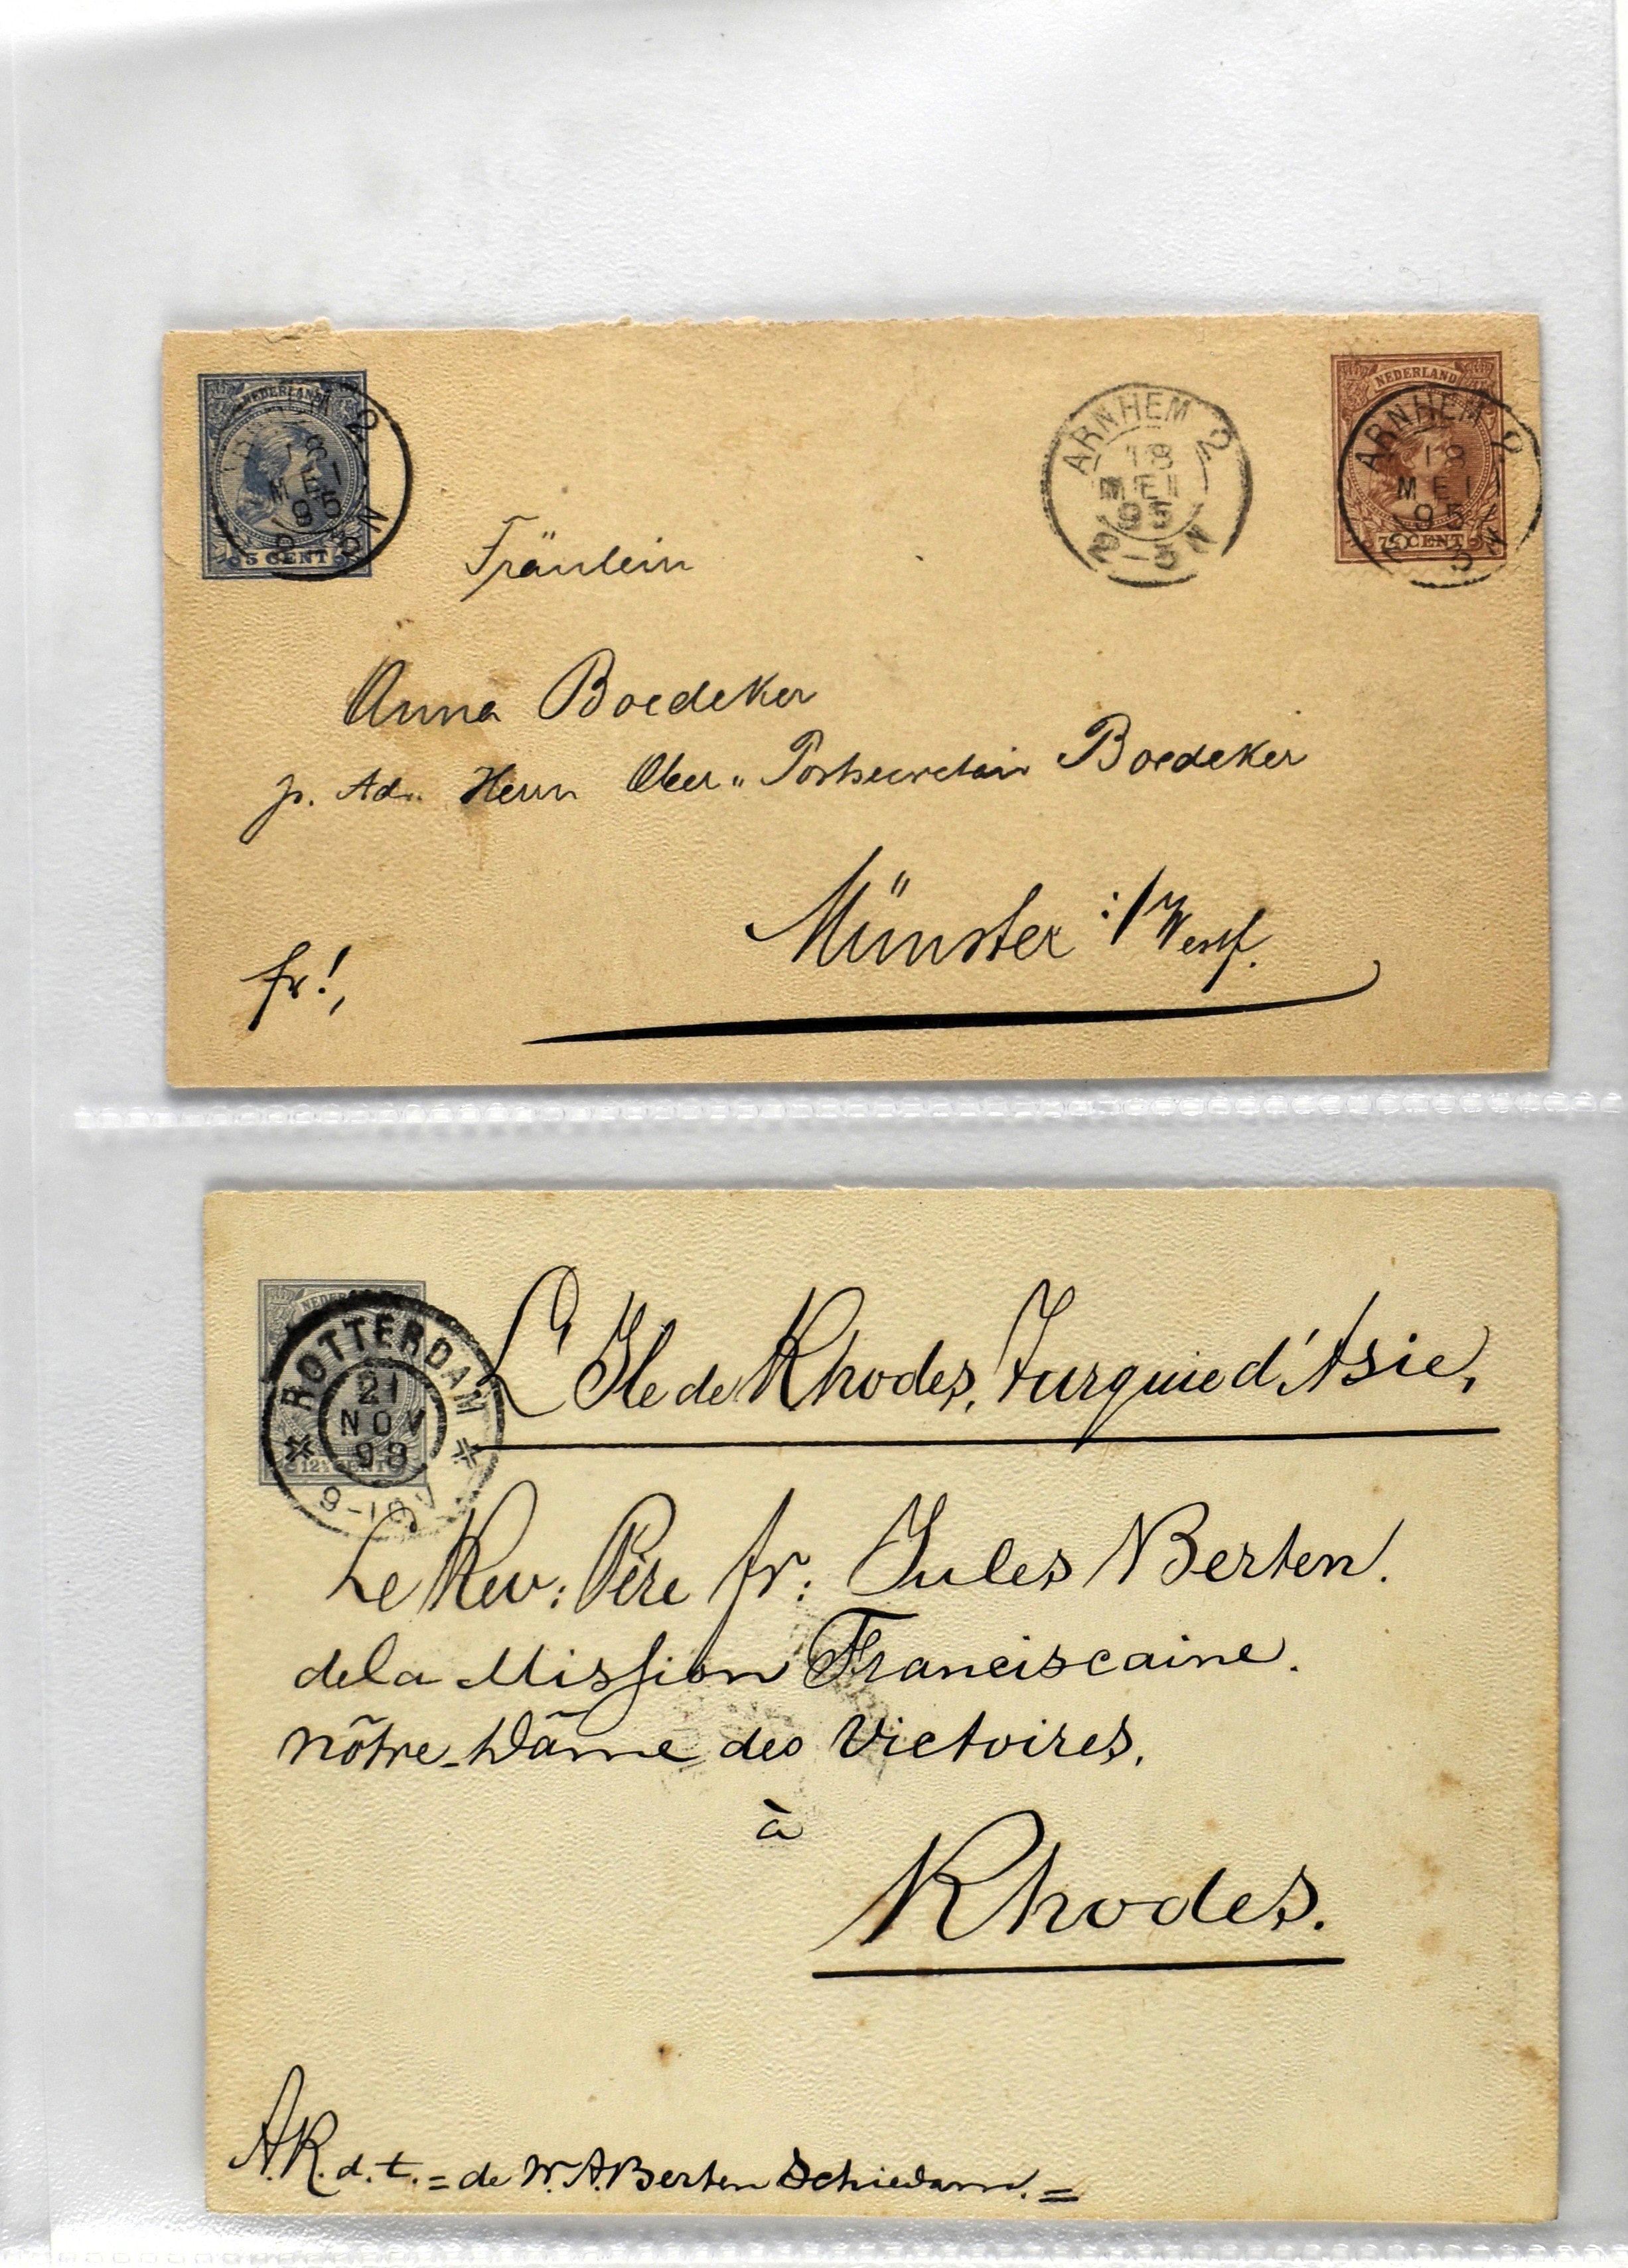 NEDERLAND
5 CENT
ARNHEM 2
18
MEI
95
-5N
NEDERLAND
7½ CENT
ARNHEM 2
18
MEI
95
Fräulein
Anna Boedeker
p. Adr. Herrn Ober" Postsecretair Boedeker
Münster i/Westf.
fr!,
ROTTERDAM
21
NOV
98
9-10V
12½ CENT
L'Ile de Rhodes, Turquie d'Asie,
Le Rev: Père fr: Jules Berten.
de la Mission Franciscaine.
nôtre-Dâme des Victoires.
à
Rhodes.
A.R.d.t. = de W.A. Berten Schiedam. =